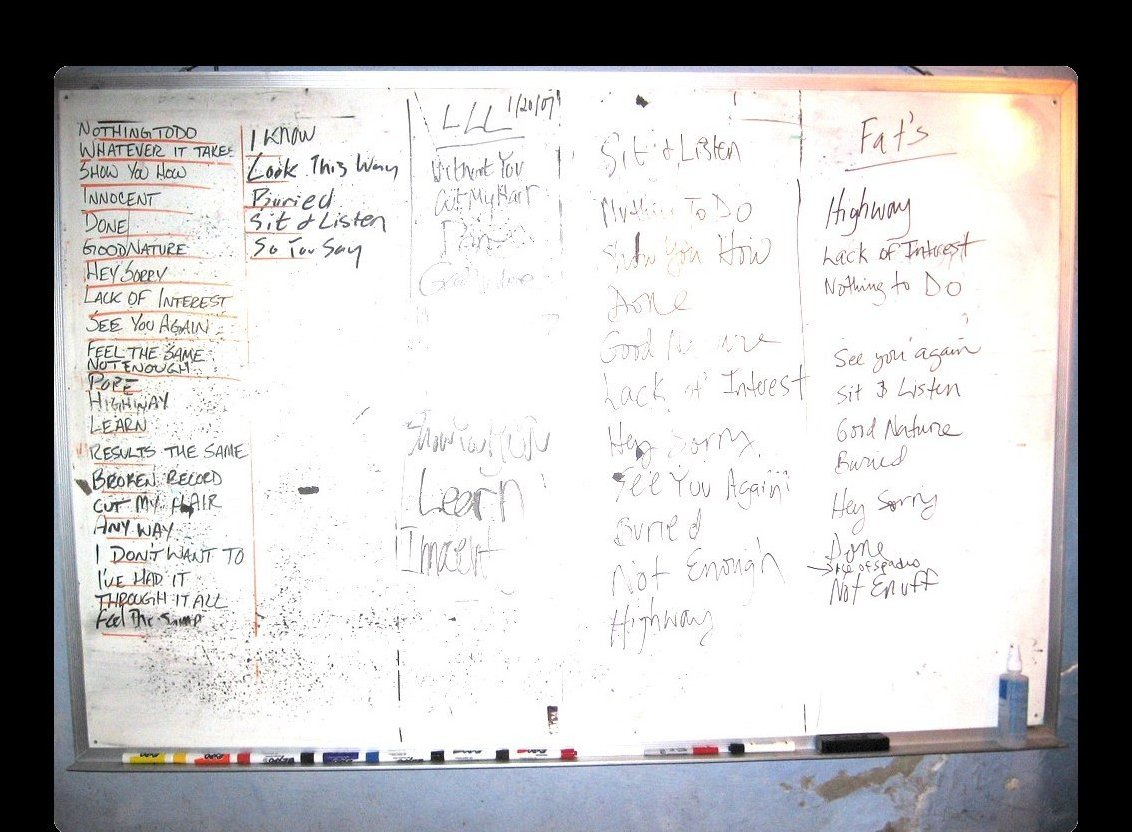 NOTHING TO DO
WHATEVER IT TAKES
SHOW YOU HOW
INNOCENT
DONE
GOOD NATURE
HEY SORRY
LACK OF INTEREST
SEE YOU AGAIN
FEEL THE SAME
NOT ENOUGH
POPE
HIGHWAY
LEARN
RESULTS THE SAME
BROKEN RECORD
CUT MY HAIR
ANY WAY
I DON'T WANT TO
I'VE HAD IT
THROUGH IT ALL
Feel The
I KNOW
Look This Way
Buried
Sit & Listen
So You Say
LLL 1/20/07
Without You
Cut My Hair
Good Nature
Show You How
Learn
Innocent
Sit & Listen
Nothin To Do
Show You How
Done
Good Nature
Lack of Interest
Hey Sorry
See You Again
Buried
Not Enough
Highway
Fat's
Highway
Lack of Interest
Nothing to Do
See you again
Sit & Listen
Good Nature
Buried
Hey Sorry
Done
of spades
Not Enuff